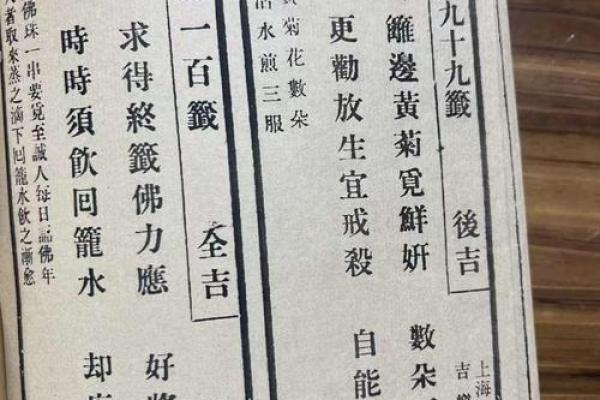 九十九籤 後吉
上海
吉
籬邊黃菊覓鮮妍 數朵
更勸放生宜戒殺 自能
菊花數朵
水煎三服
一百籤 全吉
求得終籤佛力應 好將
時時須飲囘籠水 却
佛珠一串要覓至誠人每日 佛年
者取來蒸之滴下囘籠水飲之漸愈